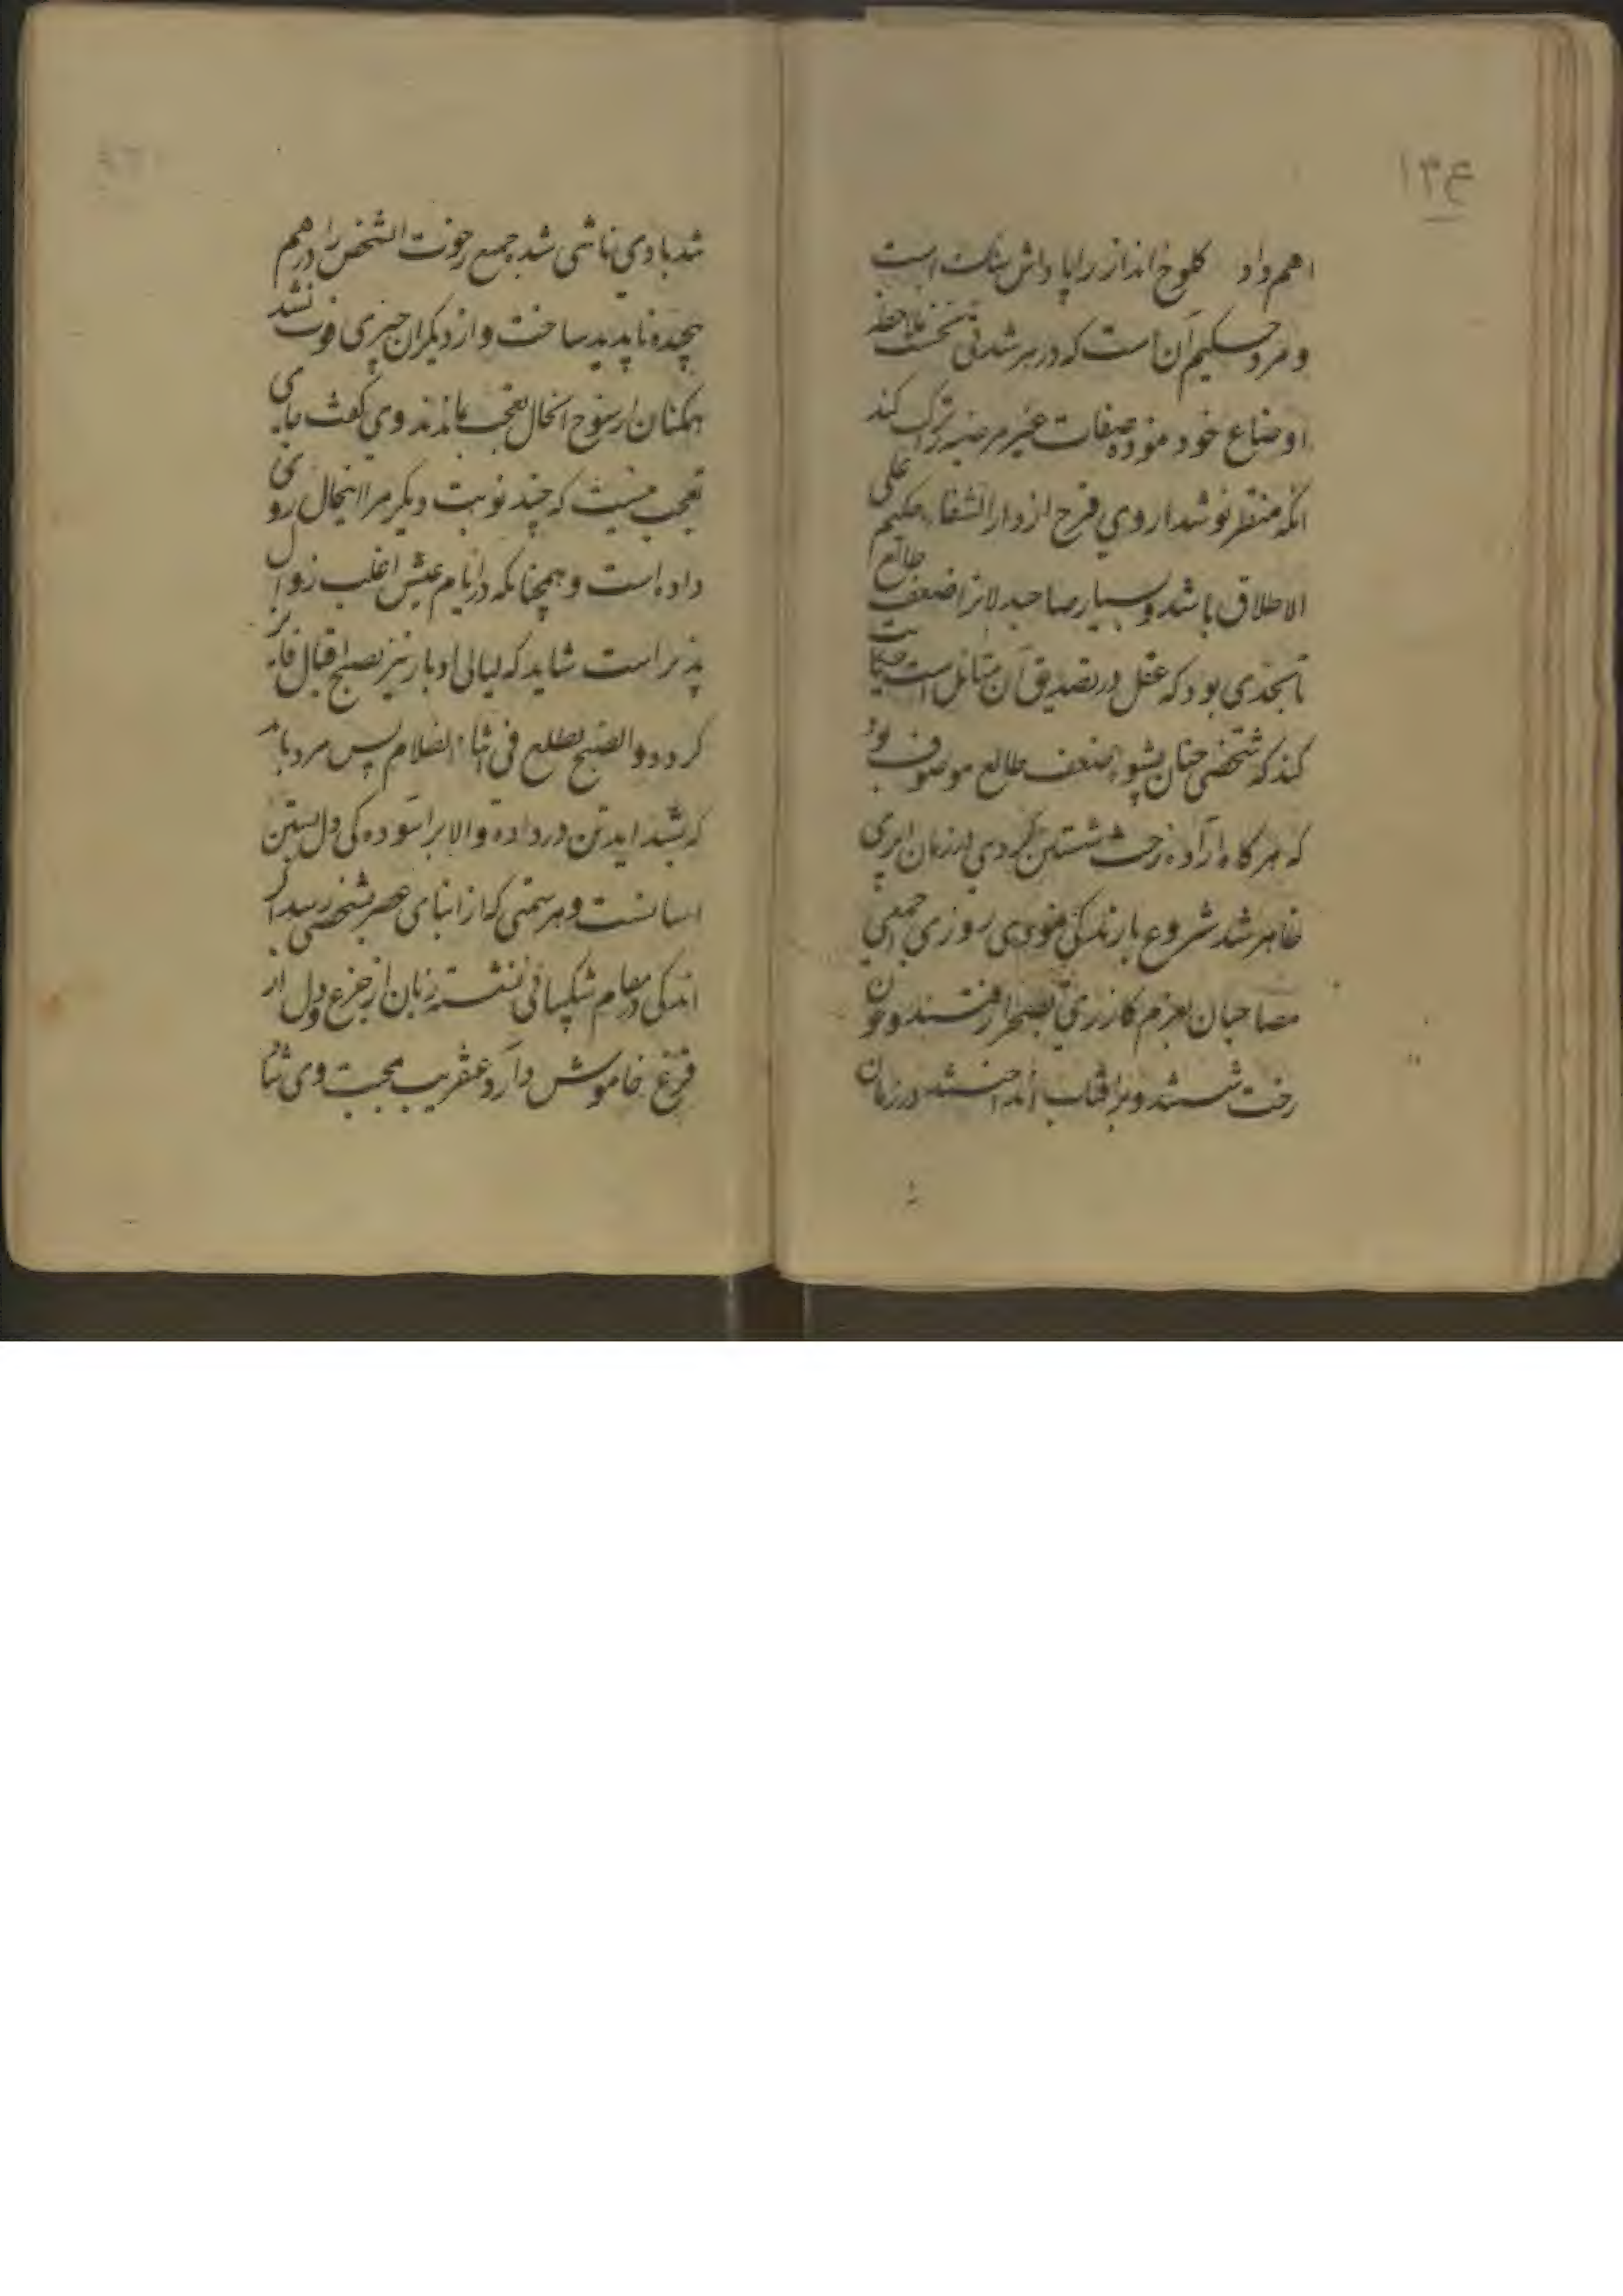 ۱۳۴
اهم داد کلوخ انداز را پاداش سنکست است
و مرد حکیم آن است که در هر شدتی نخست ملاحظه
اوضاع خود نموده صفات غیر مرضیه ترک کند
انکه منتظر نوشداروی فرح از دار الشفاء حکیم علی
الاطلاق باشد و بسیار صاحبدلانرا ضعف طالع
تابحدی بود که عقل در تصدیق آن متامل است حکایت
کنند که شخصی چنان بشو ضعف طالع موصوف بود
که هر کاه اراده رخت شستن کردی در زمان ابری
ظاهر شد شروع بارندکی نمودی روزی جمعی
مصاحبان بعزم کازری بصحرا رفتند و چون
رخت شستند و بر افتاب انداختند در زمان
شد بادی ناشی شد جمیع رخوت الشخص را درهم
پیچده ناپدید ساخت و از دیکران چیزی فوت نشد
همکنان از سنوح انحال تعجب ماندند وی کفت جای
تعجب نیست که چند نوبت دیکر مرا اینحال روی
داده است و همچنانکه در ایام عیش اغلب زوال
پذیر است شاید که لیالی ادبار نیز بصبح اقبال فایز
کردد و الصبح یطلع فی اثناء الظلام پس مرد باید
که بشداید تن در داده والا بر آسوده کی دل بستن
اسانست و هر ستمی که از ابنای عصر بشخصی رسد اکر
اندکی در مقام شکیبائی نشسته زبان از جزع و دل از
فزع خاموش دارد عنقریب محبت وی